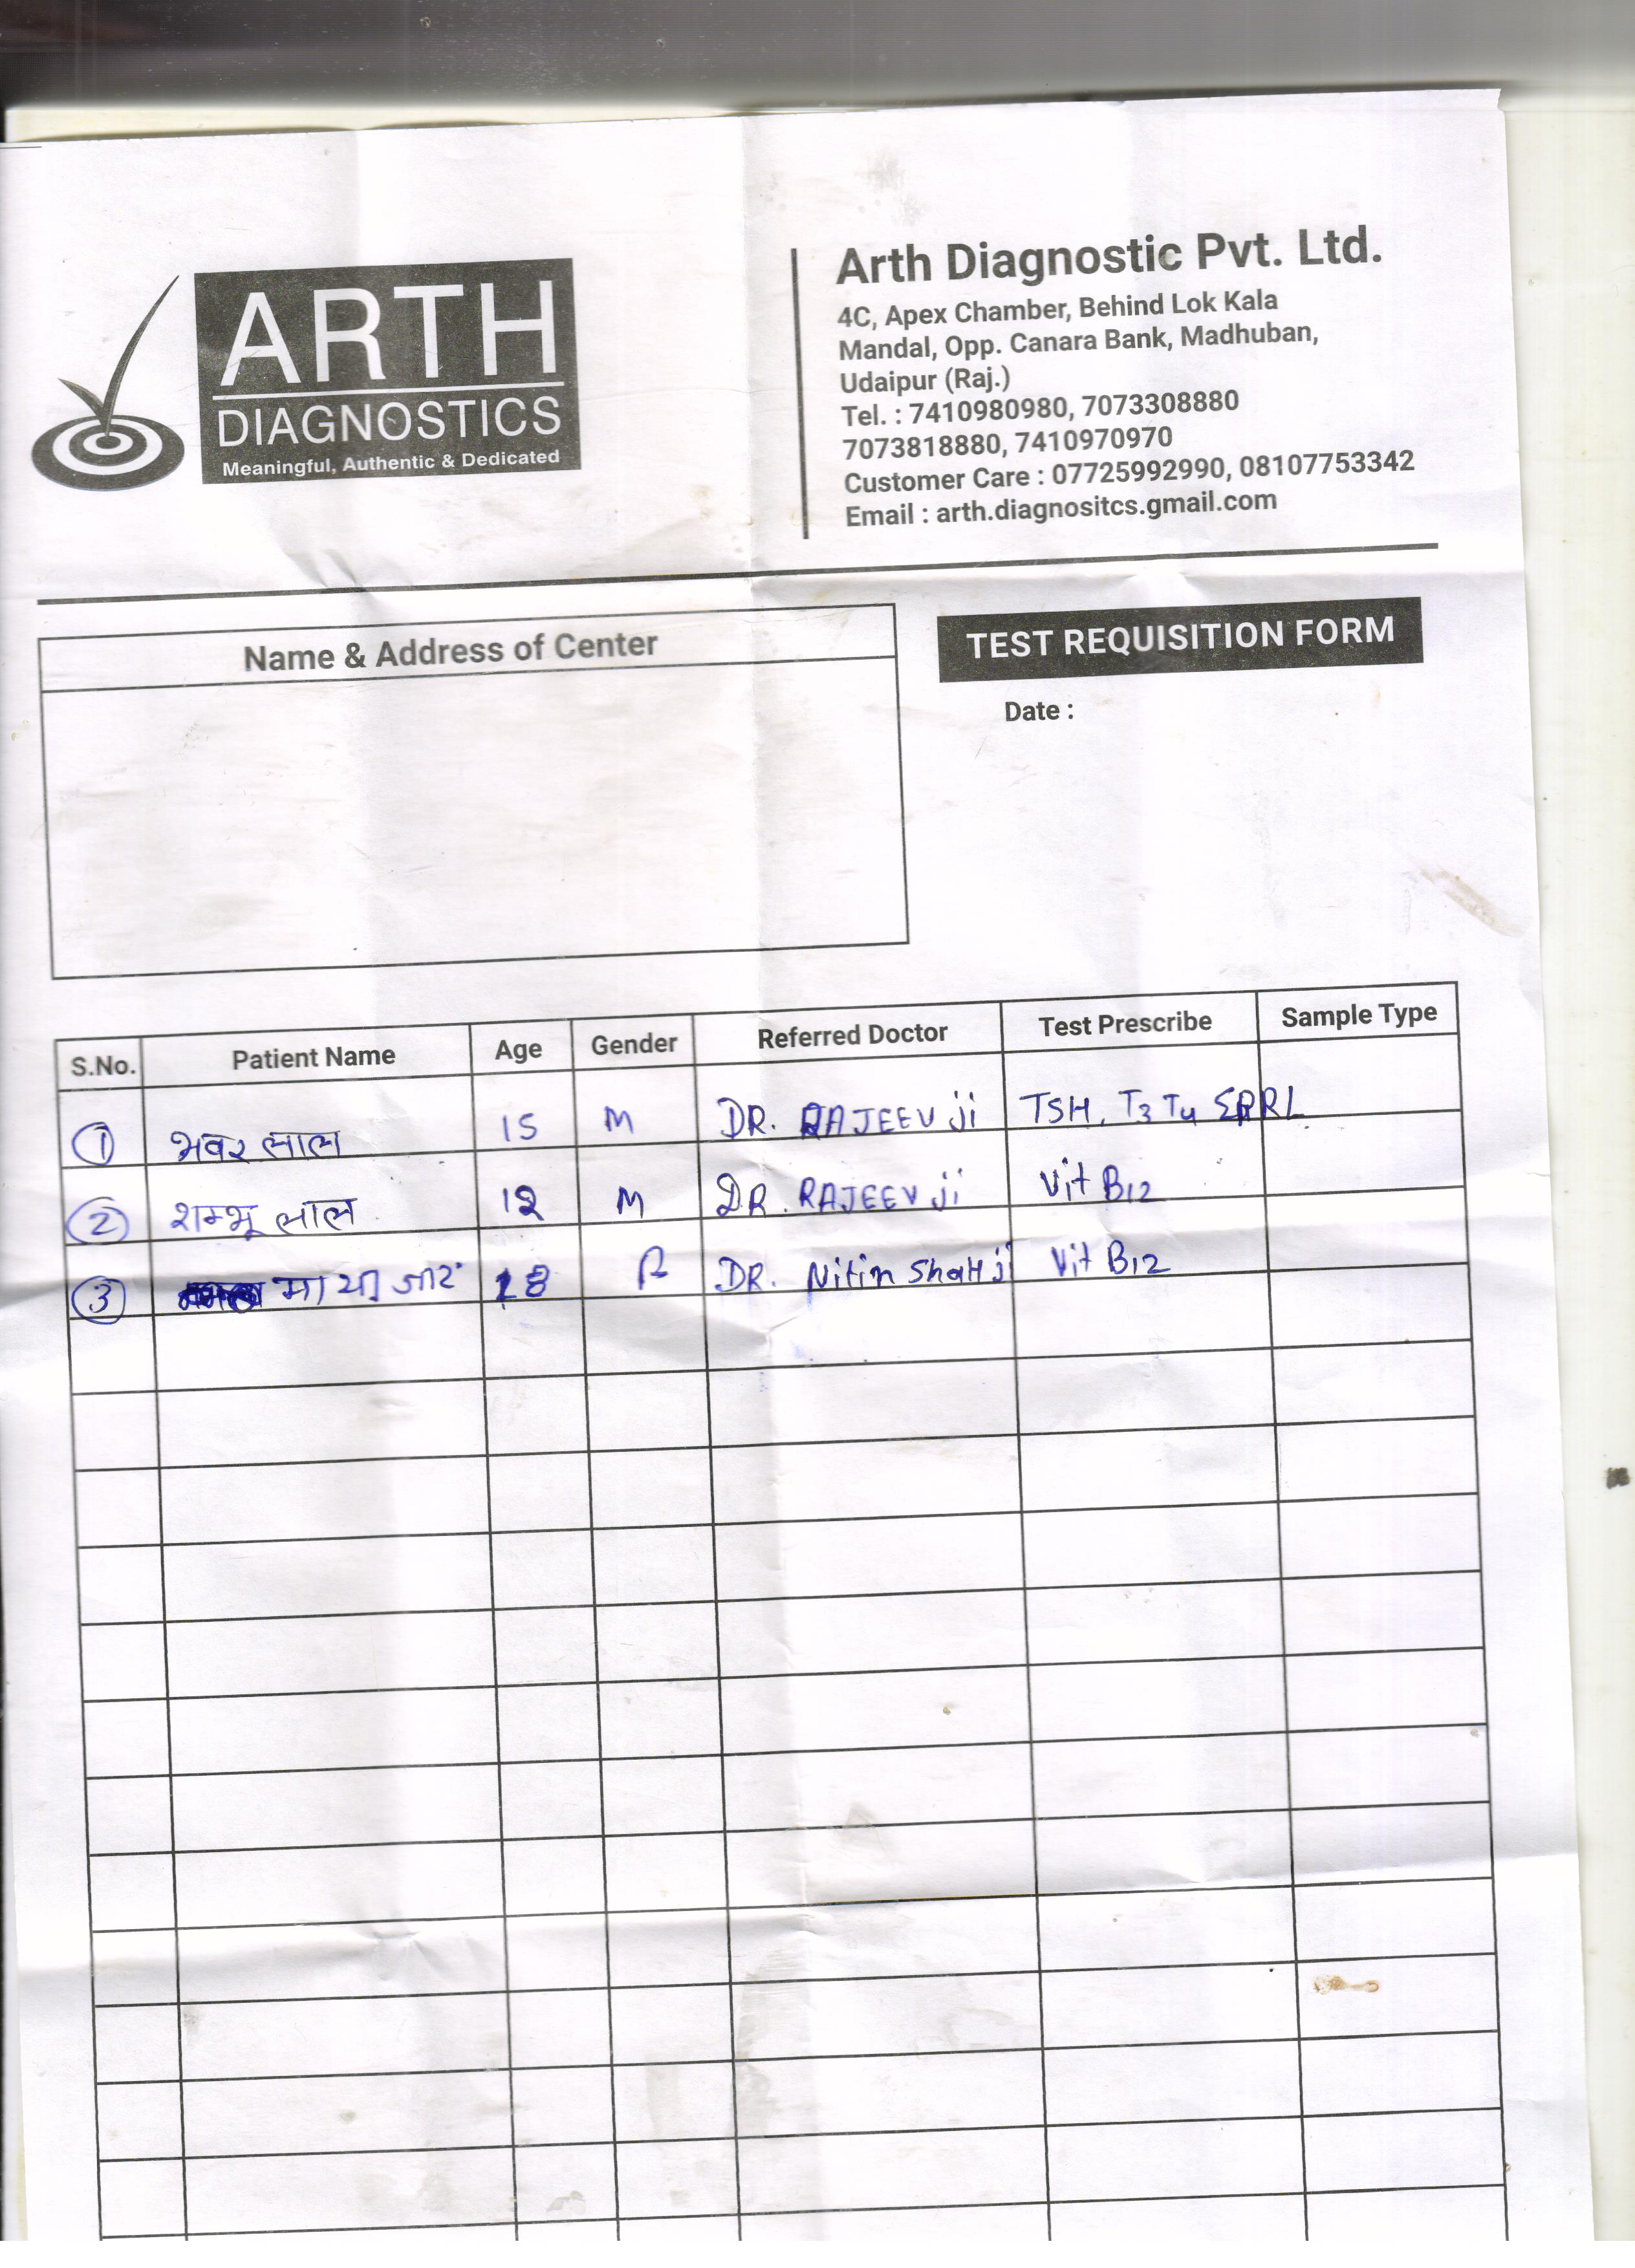 ARTH
DIAGNOSTICS
Meaningful, Authentic & Dedicated
Arth Diagnostic Pvt. Ltd.
4C, Apex Chamber, Behind Lok Kala
Mandal, Opp. Canara Bank, Madhuban,
Udaipur (Raj.)
Tel. : 7410980980, 7073308880
7073818880, 7410970970
Customer Care : 07725992990, 08107753342
Email : arth.diagnositcs.gmail.com
Name & Address of Center
TEST REQUISITION FORM
Date :
S.No. Patient Name Age Gender Referred Doctor Test Prescribe Sample Type
1 भवर लाल 15 M DR. RAJEEV ji TSH, T3 T4
2 शम्भू लाल 12 M DR. RAJEEV ji Vit B12
3 माया जाट 18 DR. Nitin Shah ji Vit B12